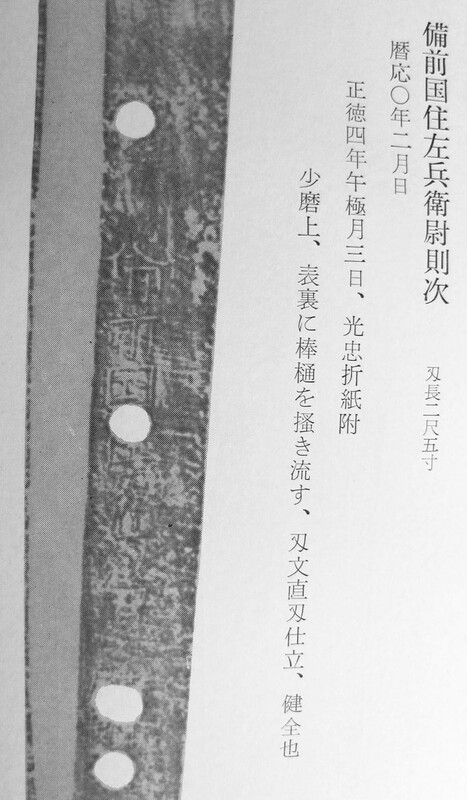 備前国住左兵衛尉則次
刃長二尺五寸
暦応〇年二月日
正徳四年午極月三日、光忠折紙附
少磨上、表裏に棒樋を掻き流す、刃文直刃仕立、健全也
備前国